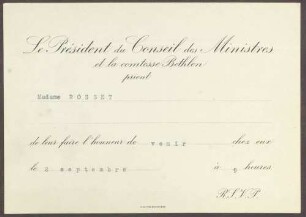 Le Président du Conseil des Ministres
et la comtesse Bethlen
prient
Madame
de leur faire l'honneur de venir chez eux
le 2 septembre à 5 heures
R.S.V.P.